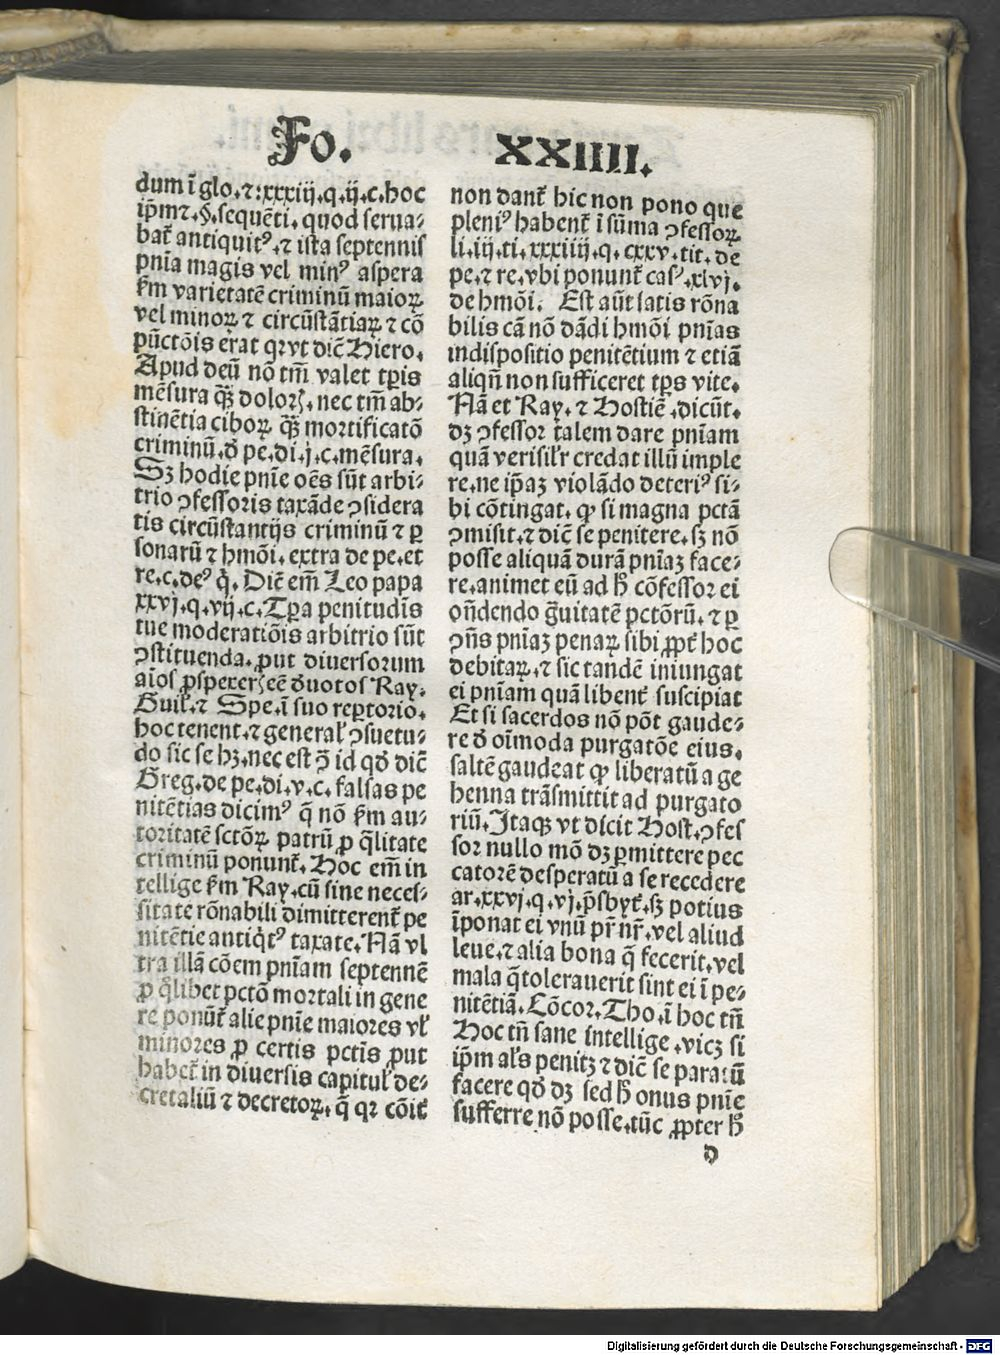 Fo. XXIIII.
dum ī glo.⁊:xxxiij.q.ij.c.hoc
ip̄m⁊.§.sequēti.quod serua⸗
bat̄ antiquit⁹.⁊ ista septennis
pnīa magis vel min⁹ aspera
ẜm varietatē criminū maioꝝ
vel minoꝝ ⁊ circūstātiaꝝ ⁊ cō
pūctōis erat qꝛ vt dic̄ Hiero.
Apud deū nō tm̄ valet tp̄is
mēsura qꝫ̄ doloris.nec tm̄ ab⸗
stinētia ciboꝝ qꝫ̄ mortificatō
criminū.đ pe.di.j.c.mēsura.
Sꝫ hodie pnīe oēs sūt arbi⸗
trio ꝯfessoris taxāde ꝯsidera
tis circūstantijs criminū ⁊ ꝑ
sonarū ⁊ hmōi.extra de pe.et
re.c.de⁹ q̇.Dic̄ em̄ Leo papa
xxvj.q.vij.c.Tp̄a penitudīs
tue moderatiōis arbitrio sūt
ꝯstituenda.ꝓut diuersorum
aīos ꝑspexeris eē đuotos Ray.
Guil̄.⁊ Spe.ī suo reꝑtorio.
hoc tenent.⁊ general̄ ꝯsuetu⸗
do sic se hꝫ.nec est ꝯ̄ id qđ dic̄
Greg.de pe.di.v.c.falsas pe
nitētias dicim⁹ q̄ nō ẜm au⸗
toritatē sctōꝝ patrū ꝓ q̄litate
criminū ponunt̄.Hoc em̄ in
tellige ẜm Ray.cū sine neces⸗
sitate rōnabili dimitterent̄ pe
nitētie antiq̇t⁹ taxate.Nā vl
tra illā cōem pnīam septennē
ꝓ q̄libet pctō mortali in gene
re ponūt̄ alie pnīe maiores vl̄
minores ꝓ certis pctīs ꝓut
habet̄ in diuersis capitul̄ de⸗
cretaliū ⁊ decretoꝝ.q̄ qꝛ cōit̄
non dant̄ hic non pono que
pleni⁹ habent̄ ī sūma ꝯfessoꝝ
li.iij.ti.xxxiiij.q.cxxv.tit.de
pe.⁊ re.vbi ponunt̄ cas⁹.xlvj.
de hmōi. Est aūt satis rōna
bilis cā nō dādi hmōi pnīas
indispositio penitētium ⁊ etiā
aliqn̄ non sufficeret tp̄s vite.
Nā et Ray.⁊ Hostiē.dicūt.
dꝫ ꝯfessor talem dare pnīam
quā verisil̄r credat illū imple
re.ne ip̄aꝫ violādo deteri⁹ si⸗
bi cōtingat.ꝙ si magna pctā
ꝯmisit.⁊ dic̄ se penitere.sꝫ nō
posse aliquā durā pnīaꝫ face⸗
re.animet eū ad h̄ cōfessor ei
on̄dendo ḡuitatē pctōrū.⁊ ꝑ
ꝯn̄s pnīaꝫ penaꝝ sibi ꝓpt̄ hoc
debitaꝝ.⁊ sic tandē iniungat
ei pnīam quā libent̄ suscipiat
Et si sacerdos nō pōt gaude⸗
re đ oīmoda purgatōe eius.
saltē gaudeat ꝙ liberatū a ge
henna trāsmittit ad purgato
riū.Itaqꝫ vt dicit Host.ꝯfes
sor nullo mō dꝫ ꝑmittere pec
catorē desperatū a se recedere
ar.xxvj.q.vj.p̄sbyt̄.sꝫ potius
īponat ei vnū pr̄ nr̄.vel aliud
leue.⁊ alia bona q̄ fecerit.vel
mala q̄ tolerauerit sint ei ī pe⸗
nitētiā.Cōcor.Tho.ī hoc tn̄
Hoc tn̄ sane intellige.vicꝫ si
ip̄m al̄s penitꝫ ⁊ dic̄ se paratū
facere qđ dꝫ sed h̄ onus pnīe
sufferre nō posse.tūc ꝓpter h̄
d
Digitalisierung gefördert durch die Deutsche Forschungsgemeinschaft - DFG